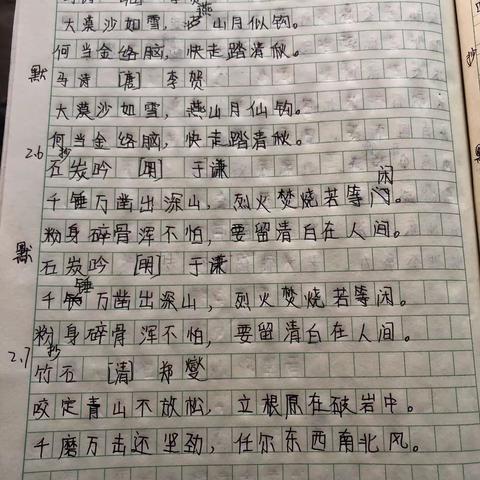 大漠沙如雪，燕山月似钩。
何当金络脑，快走踏清秋。
默
马诗 [唐] 李贺
大漠沙如雪，燕山月仙钩。
何当金络脑，快走踏清秋。
2.6 抄
石炭吟 [明] 于谦
千锤万凿出深山，烈火焚烧若等闲。
粉身碎骨浑不怕，要留清白在人间。
默
石炭吟 [明] 于谦
千锤万凿出深山，烈火焚烧若等闲。
粉身碎骨浑不怕，要留清白在人间。
2.7 抄
竹石 [清] 郑燮
咬定青山不放松，立根原在破岩中。
千磨万击还坚劲，任尔东西南北风。